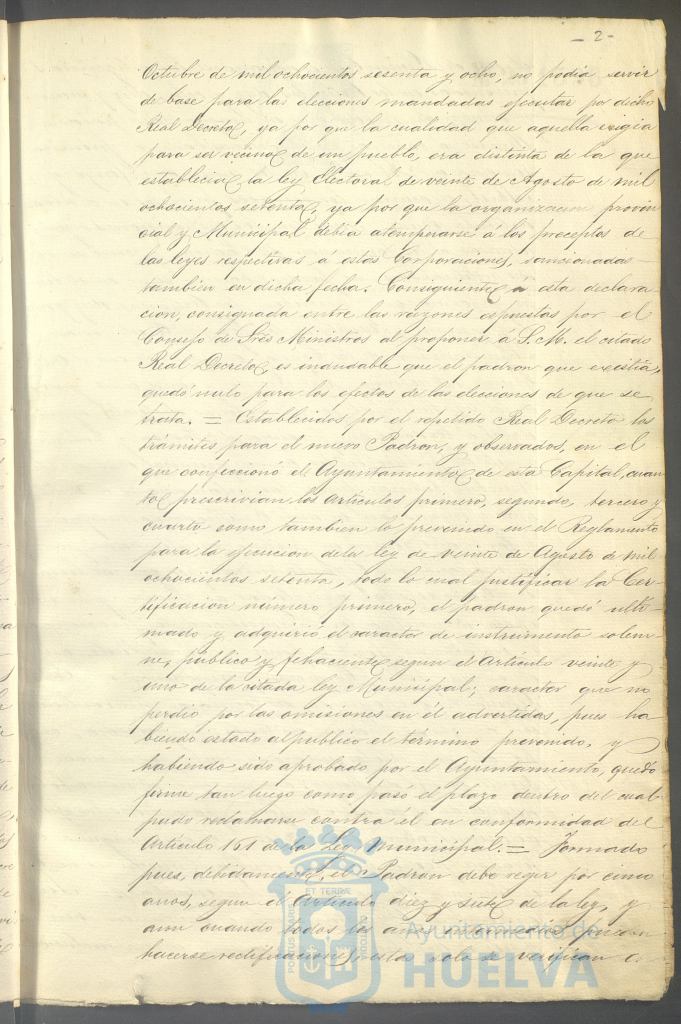 - 2 -
Octubre de mil ochocientos sesenta y ocho, no podia servir
de base para las elecciones mandadas ejecutar por dicho
Real Decreto, ya por que la cualidad que aquella exigia
para ser vecino de un pueblo, era distinta de la que
establecia la ley Electoral de veinte de Agosto de mil
ochocientos setenta, ya por que la organizacion provin
cial y Municipal debia atemperarse á los preceptos de
las leyes respectivas a estas Corporaciones, sancionadas
tambien en dicha fecha. Consiguiente á esta declara
cion, consignada entre las razones espuestas por el
Consejo de Sres Ministros al proponer á S. M. el citado
Real Decreto es indudable que el padron que existia,
quedó nulo para los efectos de las elecciones de que se
trata. = Establecidos por el repetido Real Decreto los
trámites para el nuevo Padron, y observados, en el
que confeccionó el Ayuntamiento de esta Capital, cuan
to prescrivian los artículos primero, segundo, tercero y
cuarto como tambien lo prevenido en el Reglamento
para la ejecucion de la ley de veinte de Agosto de mil
ochocientos setenta, todo lo cual justificar la Cer-
tificacion número primero, el padron quedó ulti-
mado y adquirió el caracter de instrumento solem-
ne, público y fehaciente segun el Artículo veinte y
uno de la citada ley Municipal; caracter que no
perdió por las omisiones en él advertidas, pues ha
biendo estado al publico el término prevenido, y
habiendo sido aprobado por el Ayuntamiento, quedó
firme tan luego como pasó el plazo dentro del cual
pudo reclamarse contra él en conformidad del
Artículo 161 de la Ley Municipal. = Formado
pues, debidamente, el Padron debe regir por cinco
años, segun el Artículo diez y siete de la ley, y
aun cuando todos los años
hacerse rectificaciones, estas solo se verifican
PORTUS MARIS ET TERRAE CUSTODIA
Ayuntamiento de
HUELVA